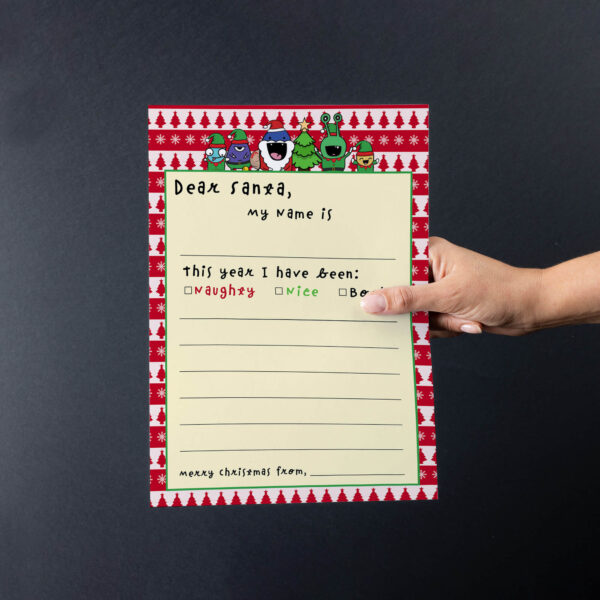 Dear Santa,
My Name is
This year I have been:
Naughty Nice
Merry Christmas from,